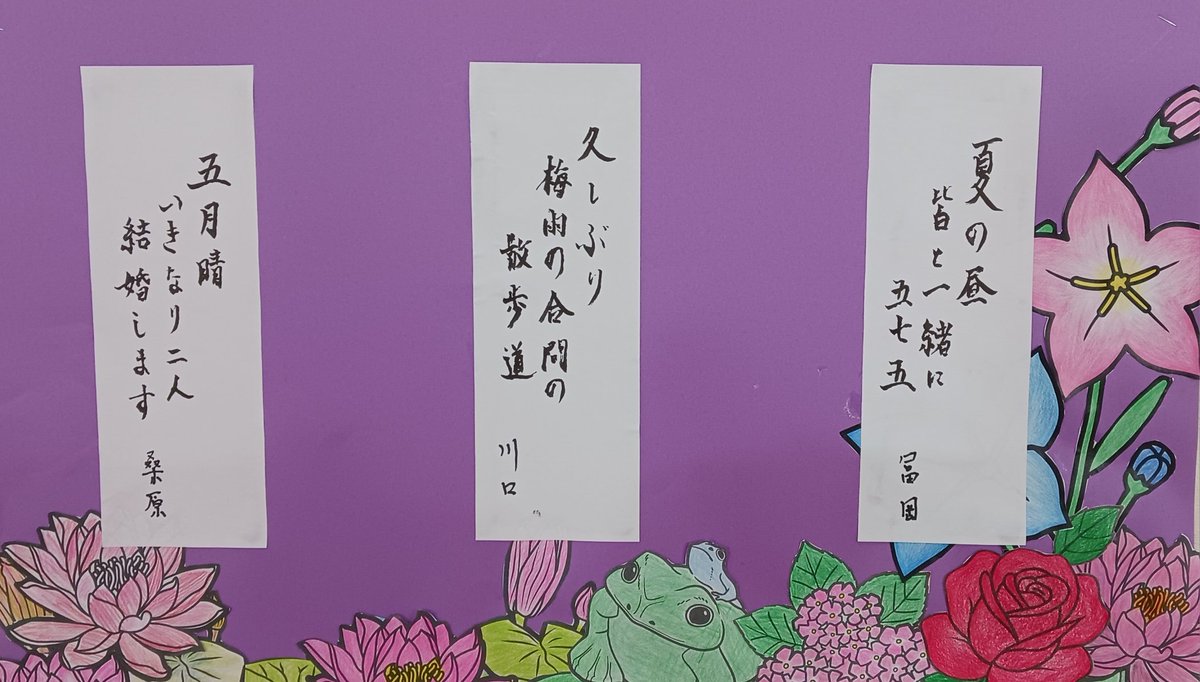 夏の昼
皆と一緒に
五七五
冨田
久しぶり
梅雨の合間の
散歩道
川口
五月晴
いきなり二人
結婚します
桑原